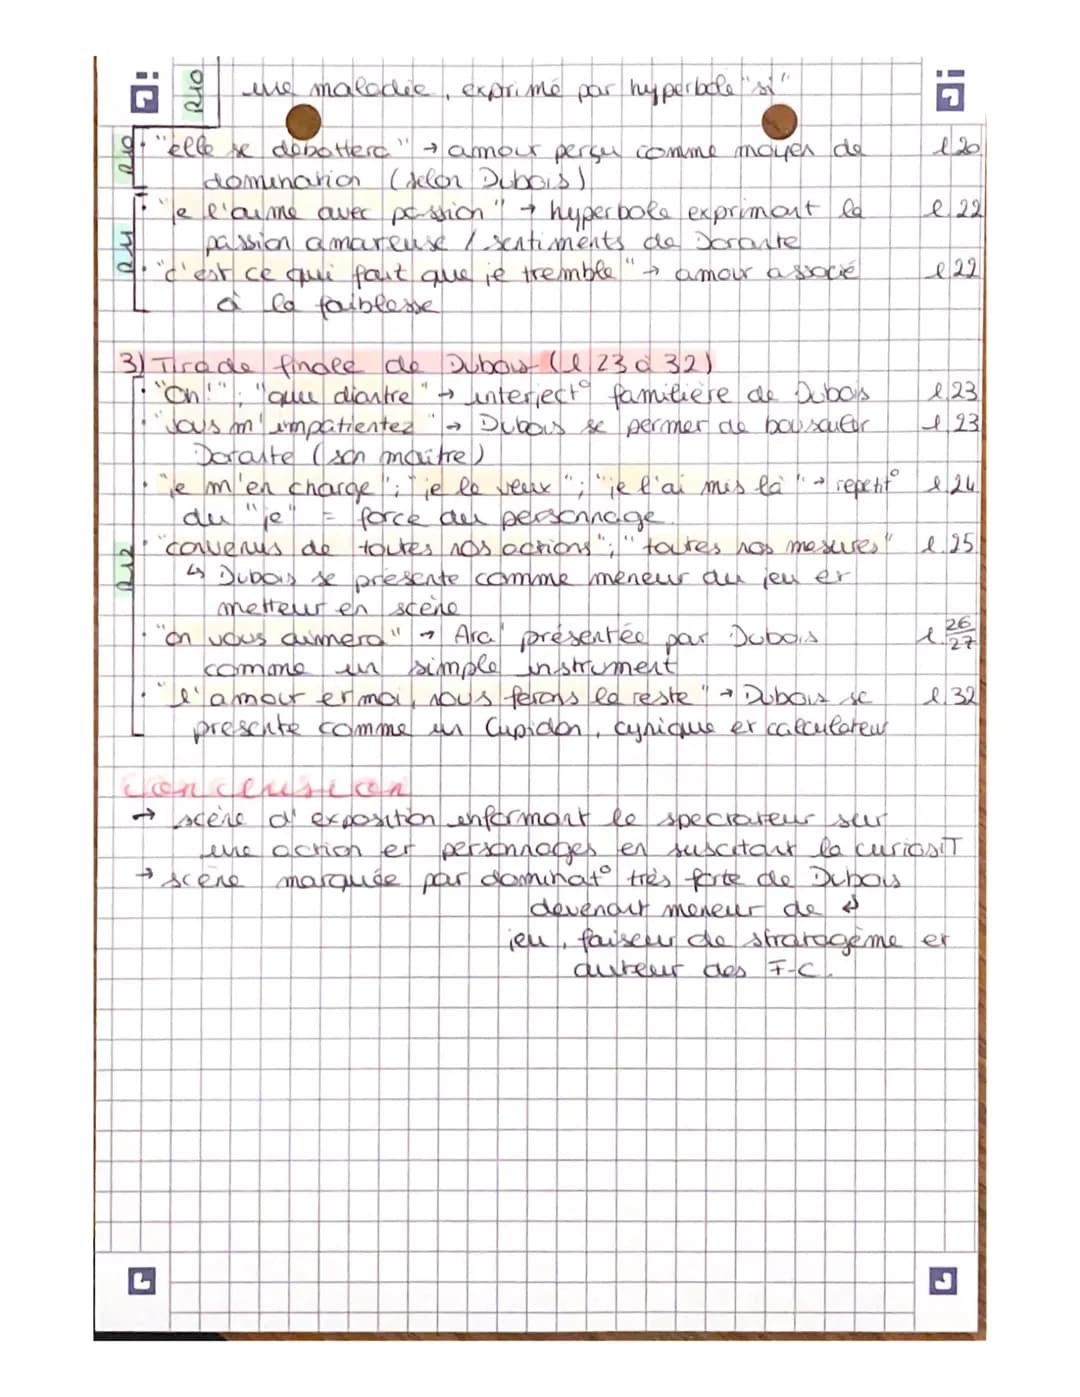 R10 une maladie, exprimé par hyperbole "si"
R10 • "elle se débattera" → amour perçu comme moyen de l 20
domination (selon Dubois)
• "je l'aime avec passion" → hyperbole exprimant la l 22
passion amoureuse / sentiments de Dorante
R11 • "c'est ce qui fait que je tremble" → amour associé l 22
à la faiblesse
3) Tirade finale de Dubois (l 23 à 32)
• "Oh!"; "que diantre" → interject° familière de Dubois l.23
• "Vous m'impatientez" → Dubois se permet de bousculer l.23
Dorante (son maître)
• "je m'en charge"; "je le veux"; "je l'ai mis là" → repetit° l.24
du "je" = force du personnage.
R12 • "convenus de toutes nos actions"; "toutes nos mesures" l.25
↳ Dubois se présente comme meneur du jeu et
metteur en scène
• "on vous aimera" → Ara' présentée par Dubois l. 26/27
comme un simple instrument
• "l'amour et moi, nous ferons le reste" → Dubois se l.32
présente comme un Cupidon, cynique et calculateur
Conclusion
→ scène d'exposition informant le spectateur sur
une action et personnages en suscitant la curiosiT
→ scène marquée par dominat° très forte de Dubois
devenant meneur de
jeu, faiseur de stratagème et
auteur des F-C.